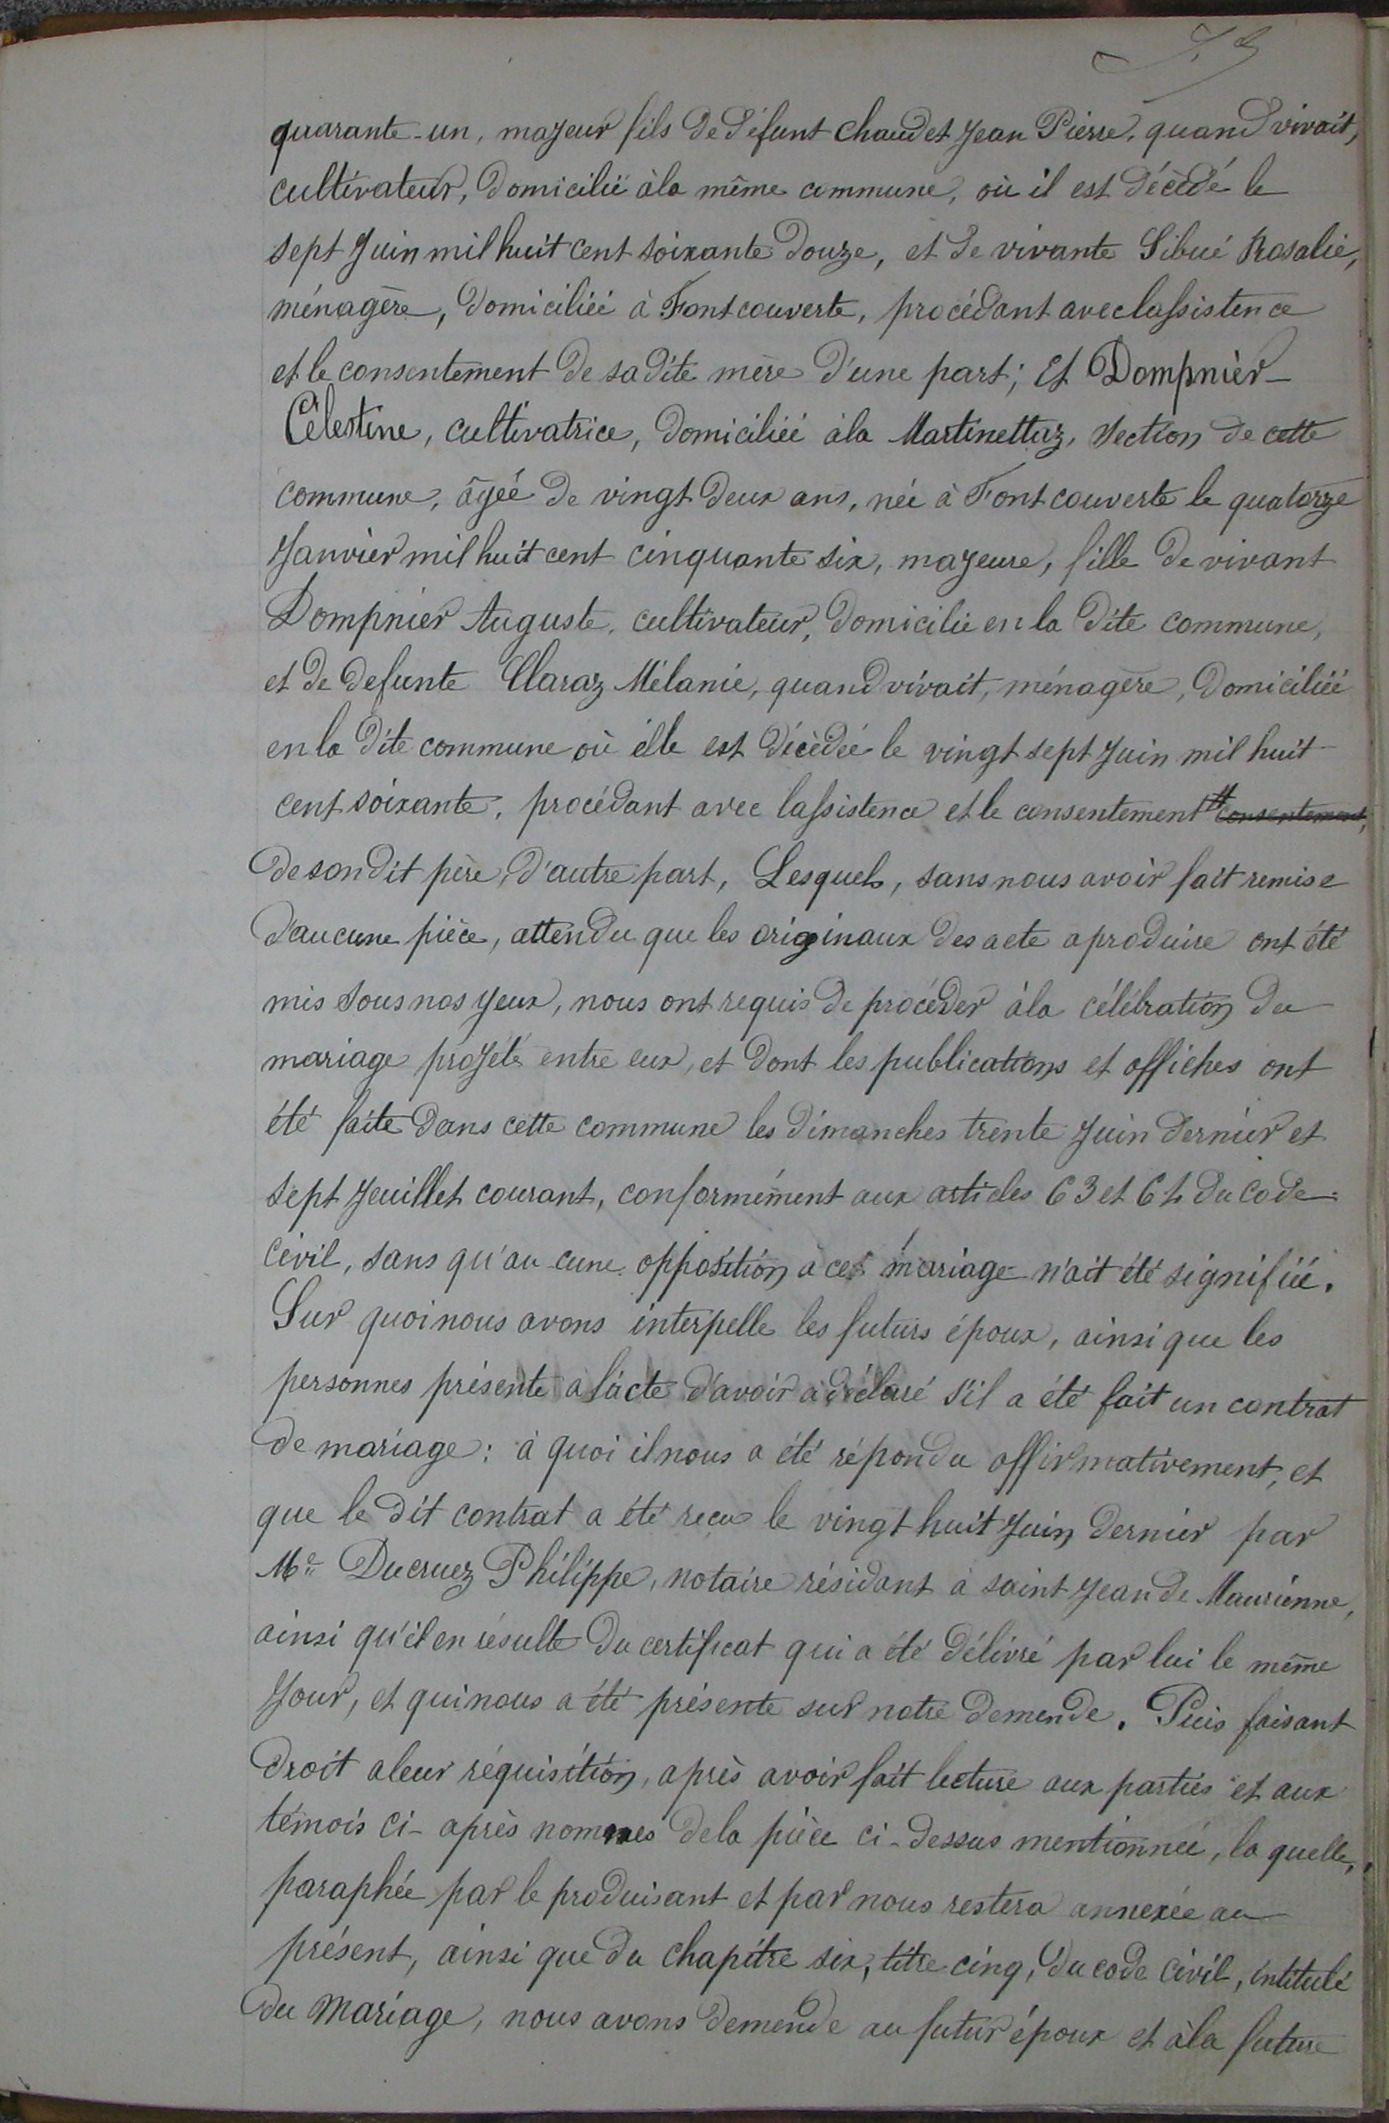 quarante-un, majeur fils de défunt Chaudet Jean Pierre, quand vivait,
cultivateur, domicilié à la même commune, où il est décédé le
sept Juin mil huit cent soixante douze, et de vivante Sibué Rosalie,
ménagère, domiciliée à Fontcouverte, procédant avec lassistence
et le consentement de sadite mère d'une part; Et Dompnier
Célestine, cultivatrice, domiciliée à la Martinettaz, section de cette
commune, âgée de vingt deux ans, née à Fontcouverte le quatorze
Janvier mil huit cent cinquante six, majeure, fille de vivant
Dompnier Auguste, cultivateur, domicilié en la dite commune,
et de defunte Claraz Mélanie, quand vivait, ménagère, domiciliée
en la dite commune où elle est décédée le vingt sept Juin mil huit
cent soixante, procédant avec lassistence et le consentement consentement,
de son dit père, d'autre part, Lesquels, sans nous avoir fait remise
d'aucune pièce, attendu que les originaux des acte a produire ont été
mis sous nos yeux, nous ont requis de procéder à la célébration du
mariage projeté entre eux, et dont les publications et affiches ont
été faite dans cette commune les dimanches trente Juin dernier et
sept Jeuillet courant, conformément aux articles 63 et 64 du code
civil, sans qu'au-cune opposition à ces mariage n'ait été signifiée.
Sur quoi nous avons interpelle les futurs époux, ainsi que les
personnes présente a l'acte d'avoir à déclaré s'il a été fait un contrat
de mariage: à quoi il nous a été répondu affirmativement, et
que le dit contrat a été recu le vingt huit Juin dernier par
Me Ducruez Philippe, notaire résidant à saint Jean de Maurienne,
ainsi qu'il en résulte du certificat qui a été délivré par lui le même
Jour, et qui nous a été présente sur notre demende. Puis faisant
droit a leur réquisition, après avoir fait lecture aux parties et aux
témois ci-après nommes de la pièce ci-dessus mentionnée, la quelle,
paraphée par le produisant et par nous restera annexée au
présent, ainsi que du chapitre six, titre cinq, du code civil, intitulé
du Mariage, nous avons demende au futur époux et à la future